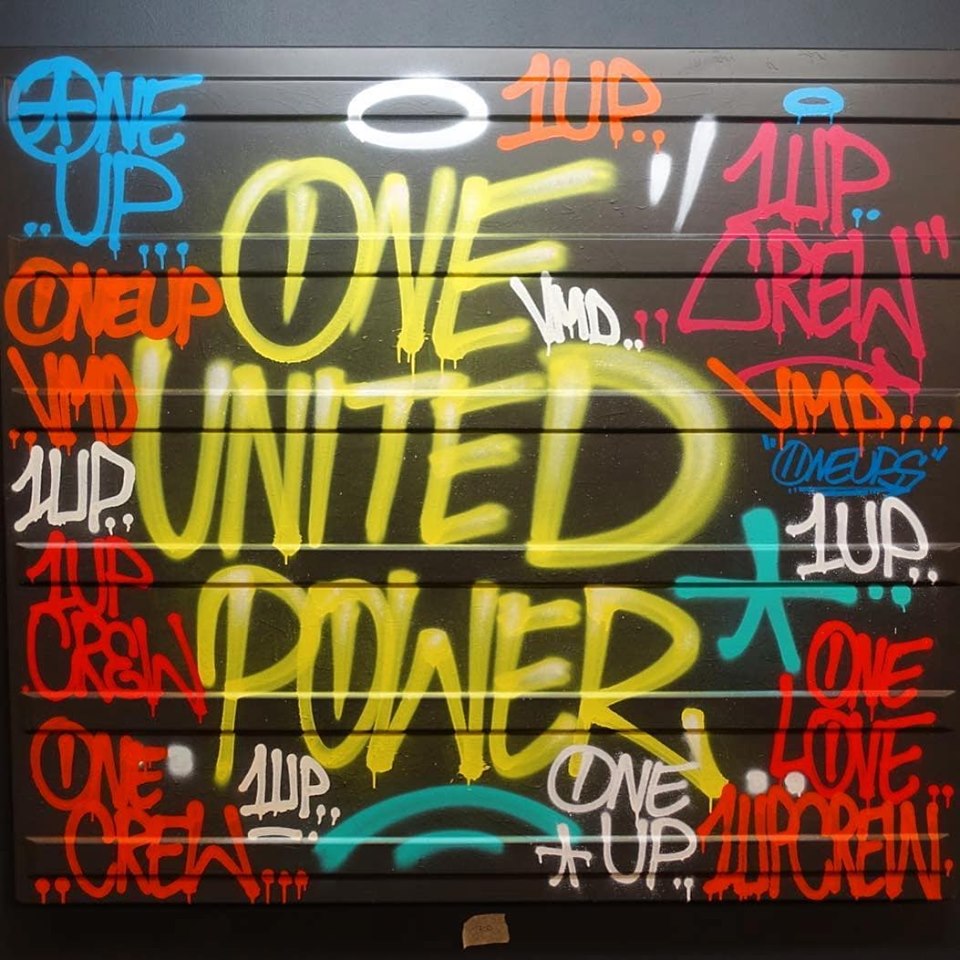 ONE
UP
1UP..
1UP
CREW"
ONE
UNITED
POWER
ONEUP
VMD
VMD..
VMD...
"ONEUPS"
1UP..
1UP..
1UP
CREW
ONE
LOVE
ONE
CREW...
1UP..
ONE
*UP..
1UPCREW.